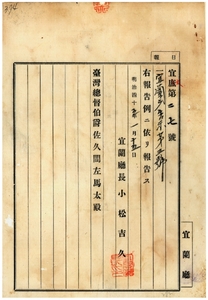 報日
宜庶第二七號
右報告例ニ依リ報告ス
明治四十五年一月十五日
宜蘭廳長 小松吉久
臺灣總督伯爵佐久間左馬太殿
宜蘭廳